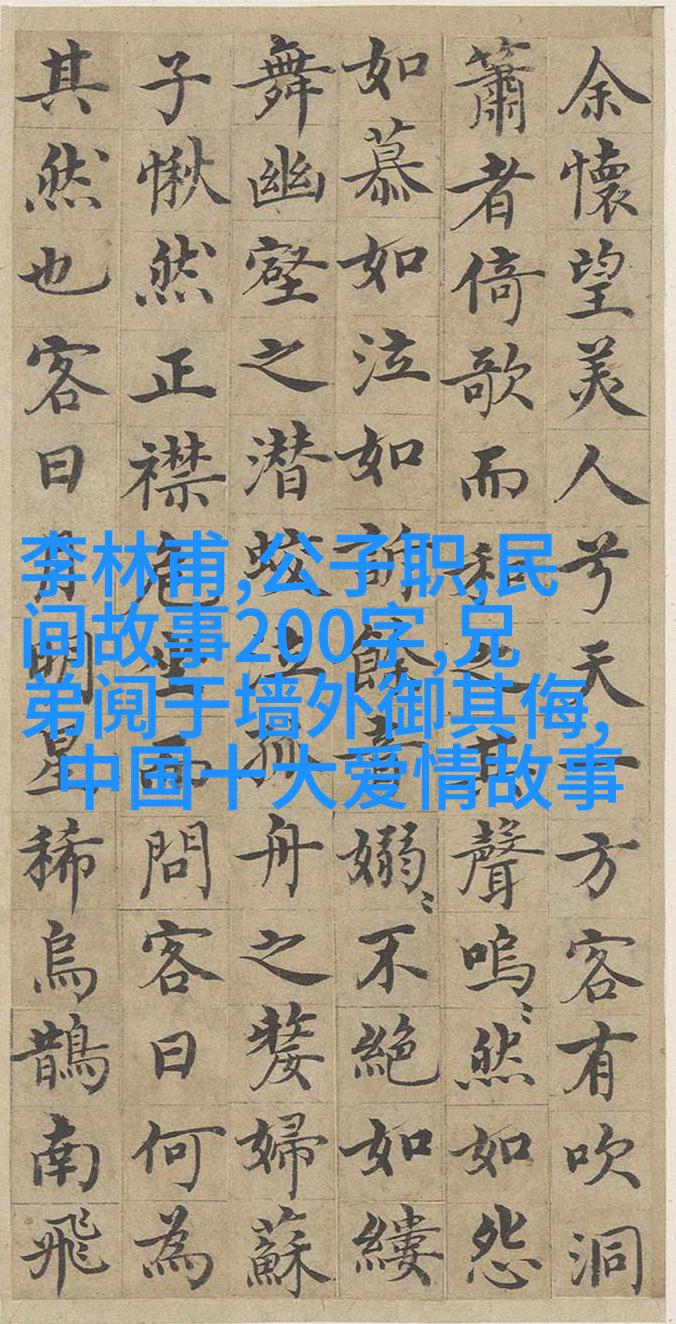 余懷望美人兮天一方客有吹洞
簫者倚歌而和之其聲嗚〻然如怨
如慕如泣如訴餘音嫋〻不絕如縷
舞幽壑之潛蛟泣孤舟之嫠婦蘇
子愀然正襟危坐而問客曰何為
其然也客曰月明星稀烏鵲南飛
李林甫,公子职,民
间故事200字,兄
弟阋于墙外御其侮,
中国十大爱情故事